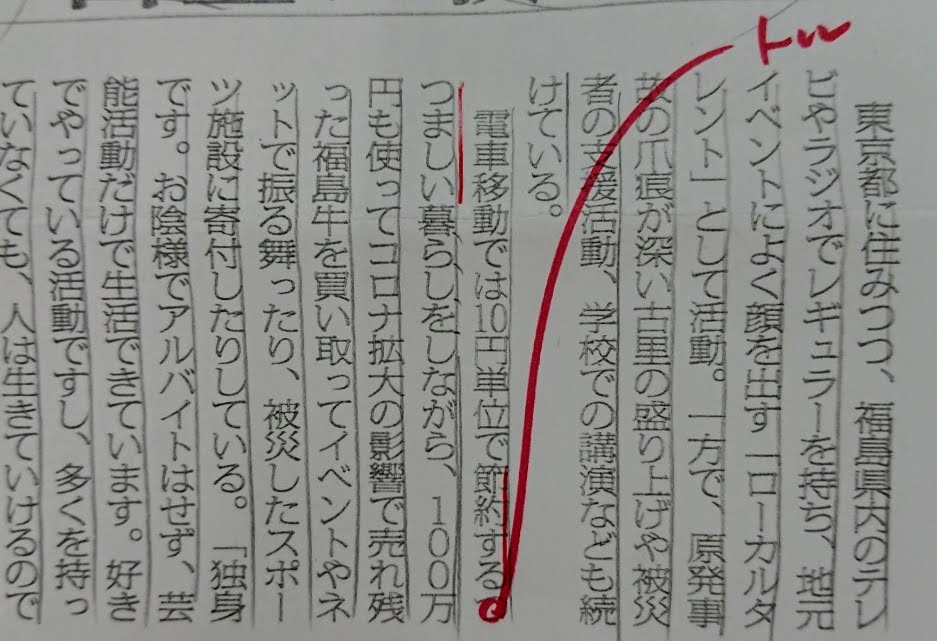 トル
東京都に住みつつ、福島県内のテレ
ビやラジオでレギュラーを持ち、地元
イベントによく顔を出す「ローカルタ
レント」として活動。一方で、原発事
故の爪痕が深い古里の盛り上げや被災
者の支援活動、学校での講演なども続
けている。
電車移動では10円単位で節約する
つましい暮らしをしながら、100万
円も使ってコロナ拡大の影響で売れ残
った福島牛を買い取ってイベントやネ
ットで振る舞ったり、被災したスポー
ツ施設に寄付したりしている。「独身
です。お陰様でアルバイトはせず、芸
能活動だけで生活できています。好き
でやっている活動ですし、多くを持っ
ていなくても、人は生きていけるので